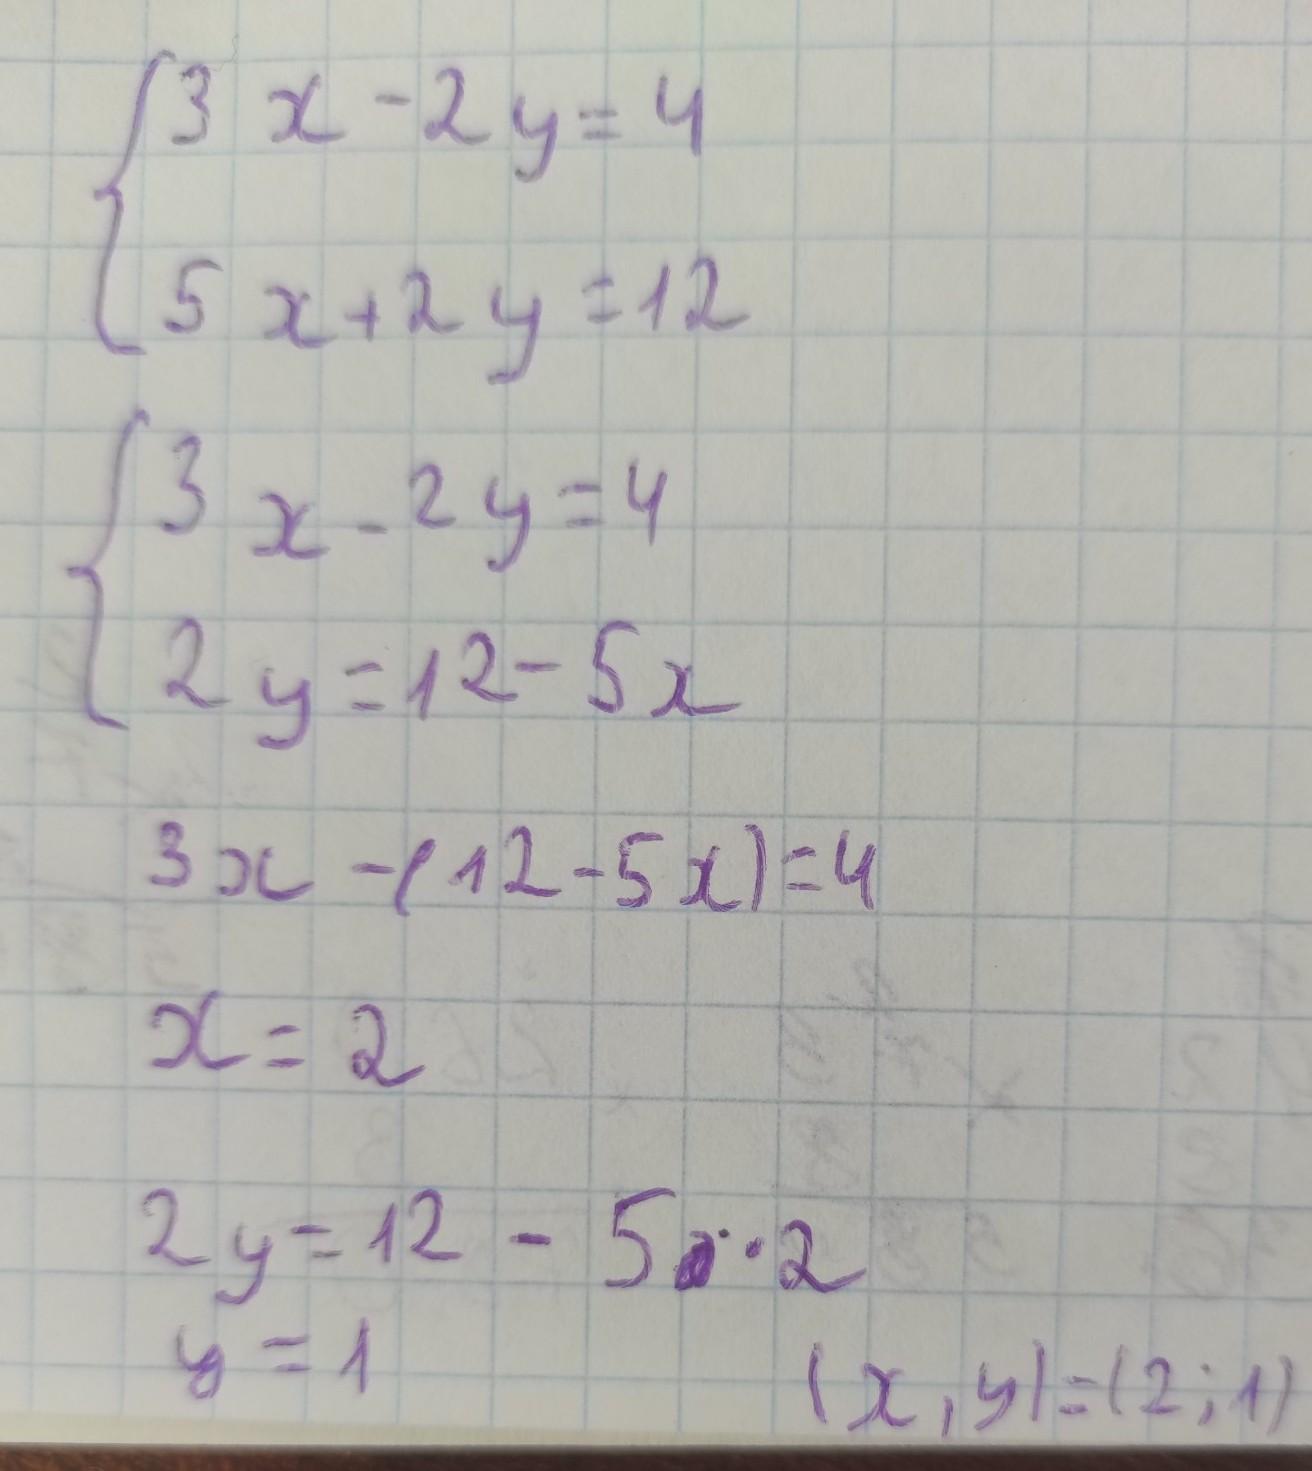 3x-2y=4
5x+2y=12
3x-2y=4
2y=12-5x
3x-(12-5x)=4
x=2
2y=12-5·2
y=1
(x,y)=(2;1)